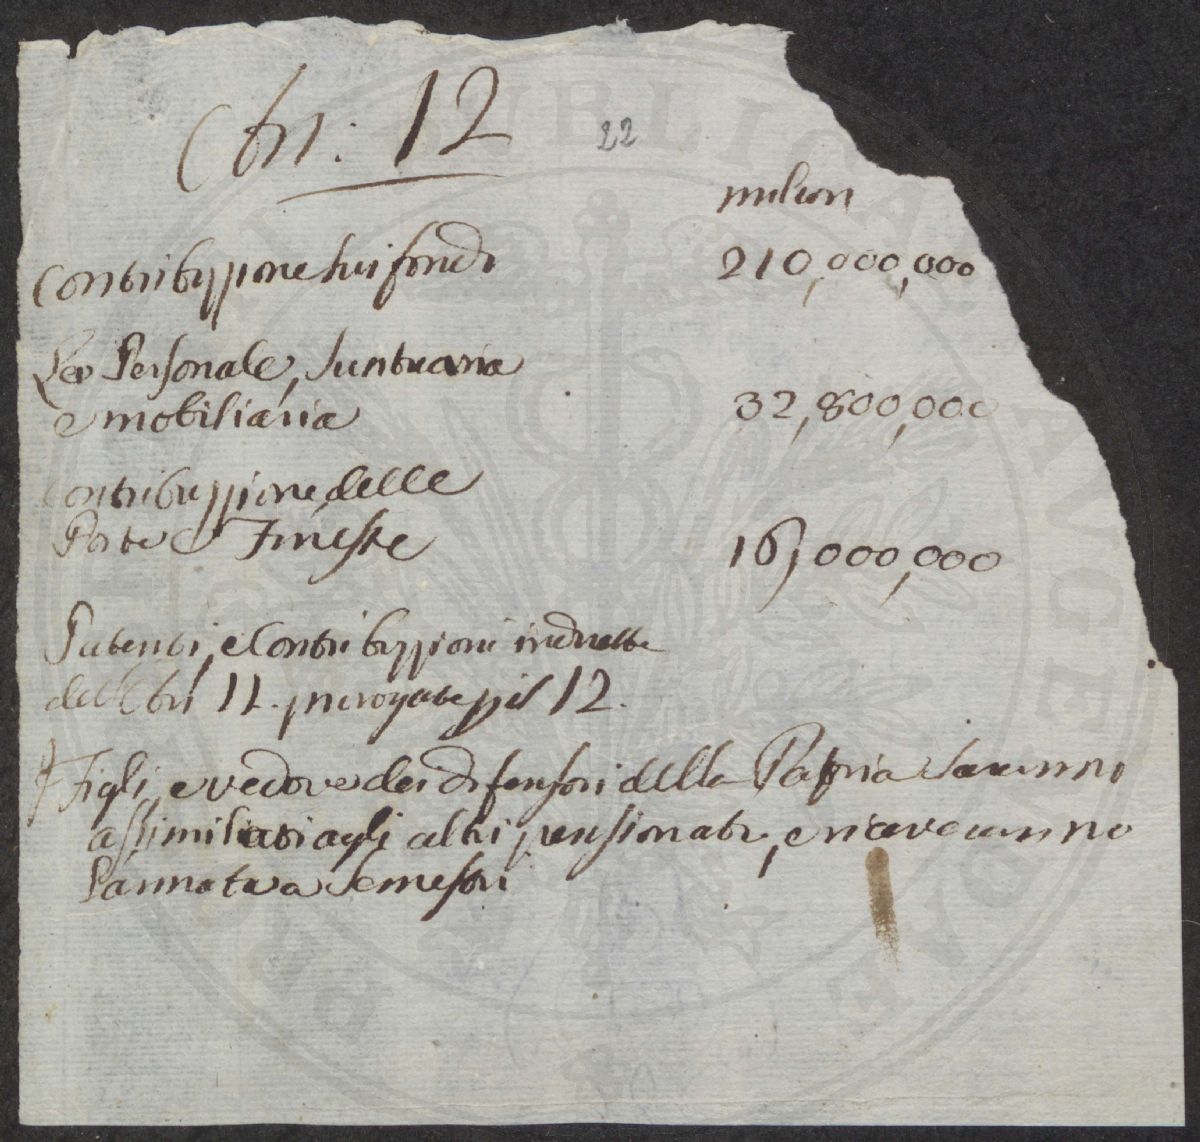 Cbri: 12
22
milion
Contribuzzione sui fondi 210,000,000
La Personale, suntuaria
e mobiliaria 32,800,000
Contribuzzione delle
Porte e Fineste 16,000,000
Patenti, e Contribuzzioni indirette
dell' Cbri 11. prorogate pil 12.
Figli, e vedove dei difensori della Patria saranno
assimilati agli altri pensionati, e riaveranno
l'annata a semestri